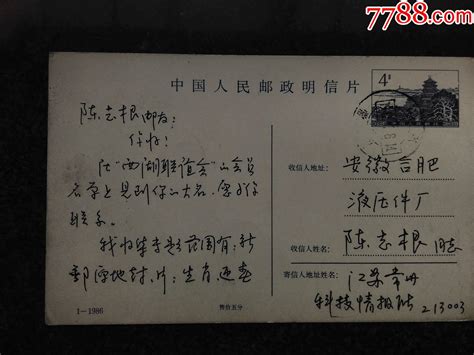 7788.com
中国人民邮政明信片
4分
陈志根邮友:
你好!
从"西湖联谊会"的会员
名单上见到你的大名,
联系。
我归集专题范围有:新
邮原地封、片;生肖
收信人地址:
安徽合肥
液压件厂
收信人姓名:
陈志根同志
寄信人地址姓名:
江苏常州
科技情报所 213003
1—1986
售价五分